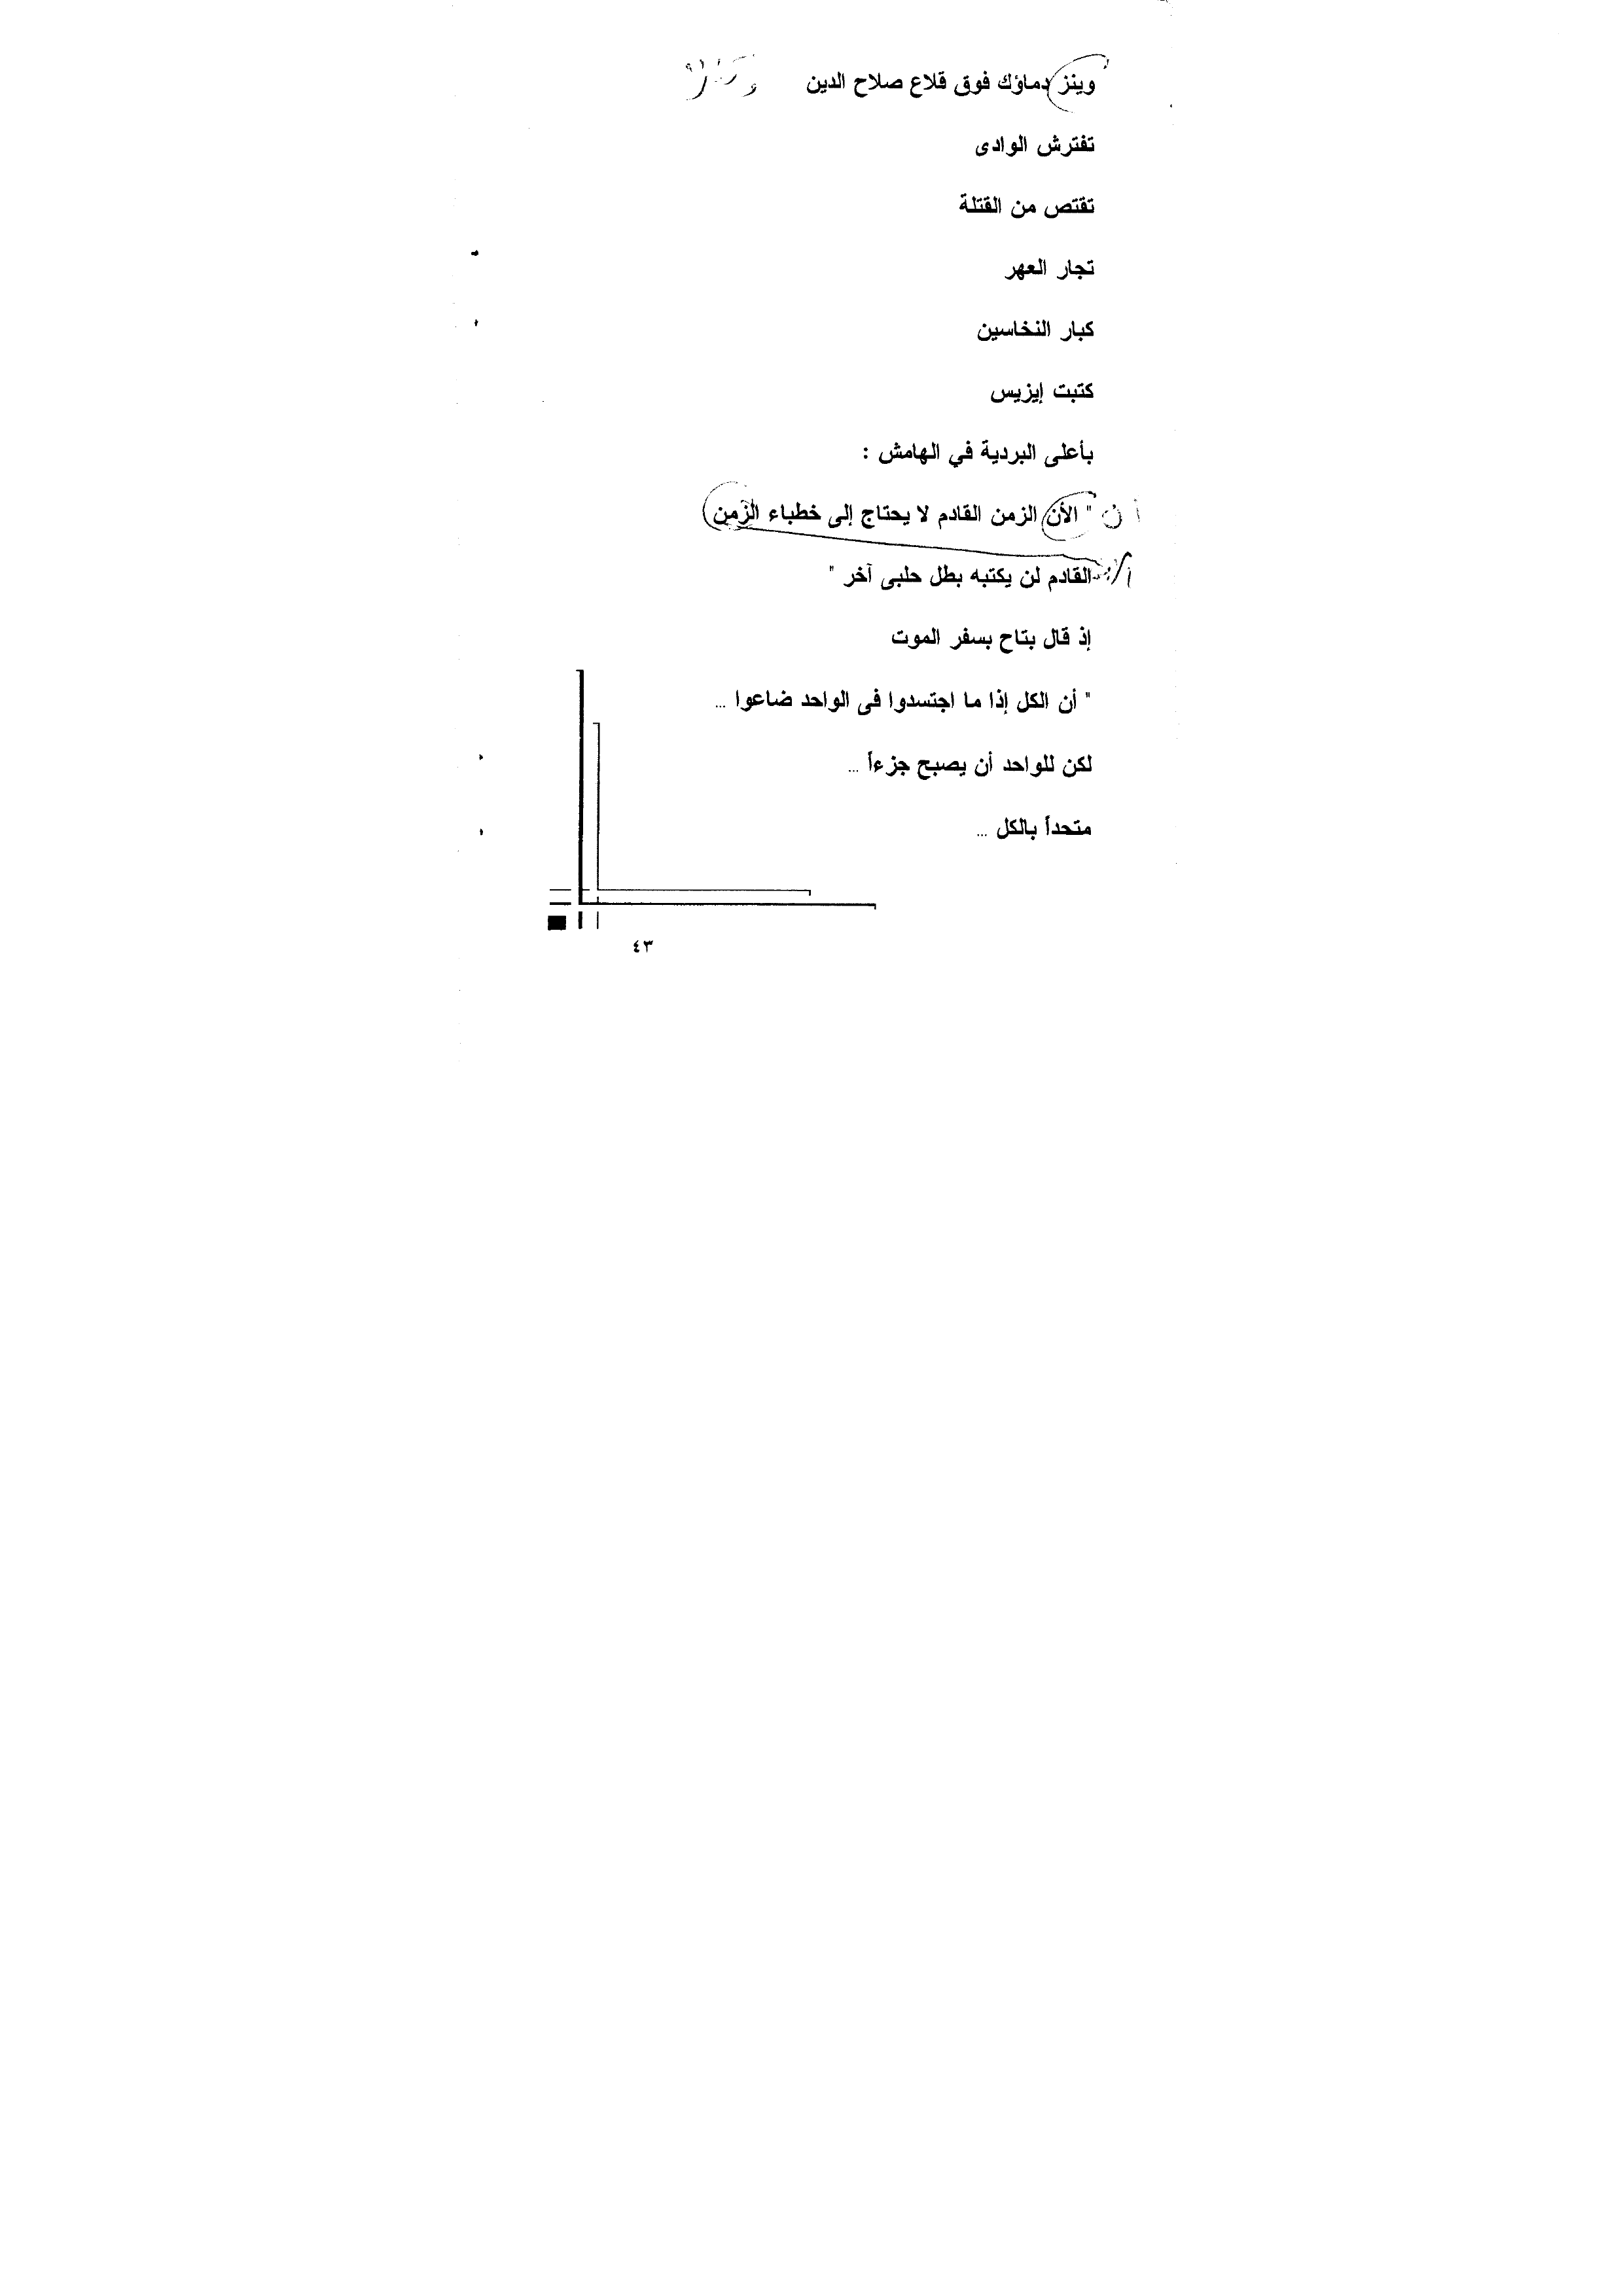 وينز دماؤك فوق قلاع صلاح الدين
تفترش الوادى
تقتص من القتلة
تجار العهر
كبار النخاسين
كتبت إيزيس
بأعلى البردية في الهامش :
أن " الأن الزمن القادم لا يحتاج إلى خطباء الزمن
القادم لن يكتبه بطل حلبى آخر "
إذ قال بتاح بسفر الموت
" أن الكل إذا ما اجتسدوا فى الواحد ضاعوا ...
لكن للواحد أن يصبح جزءاً ...
متحداً بالكل ...
٤٣